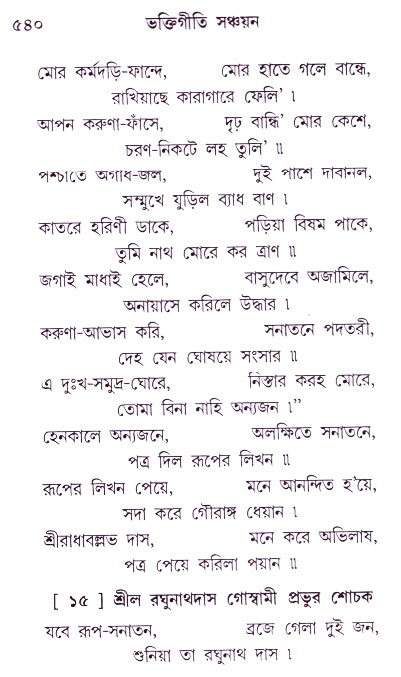 ৫৪০ ভক্তিগীতি সঞ্চয়ন
মোর কর্মদড়ি-ফান্দে, মোর হাতে গলে বান্ধে,
রাখিয়াছে কারাগারে ফেলি' ।
আপন করুণা-ফাঁসে, দৃঢ় বান্ধি' মোর কেশে,
চরণ-নিকটে লহ তুলি' ॥
পশ্চাতে অগাধ-জল, দুই পাশে দাবানল,
সম্মুখে যুড়িল ব্যাধ বাণ ।
কাতরে হরিণী ডাকে, পড়িয়া বিষম পাকে,
তুমি নাথ মোরে কর ত্রাণ ॥
জগাই মাধাই হেলে, বাসুদেবে অজামিলে,
অনায়াসে করিলে উদ্ধার ।
করুণা-আভাস করি, সনাতনে পদতরী,
দেহ যেন ঘোষয়ে সংসার ॥
এ দুঃখ-সমুদ্র-ঘোরে, নিস্তার করহ মোরে,
তোমা বিনা নাহি অন্যজন ।”
হেনকালে অন্যজনে, অলক্ষিতে সনাতনে,
পত্র দিল রূপের লিখন ॥
রূপের লিখন পেয়ে, মনে আনন্দিত হ'য়ে,
সদা করে গৌরাঙ্গ ধেয়ান ।
শ্রীরাধাবল্লভ দাস, মনে করে অভিলাষ,
পত্র পেয়ে করিলা পয়ান ॥
[ ১৫ ] শ্রীল রঘুনাথদাস গোস্বামী প্রভুর শোচক
যবে রূপ-সনাতন, ব্রজে গেলা দুই জন,
শুনিয়া তা রঘুনাথ দাস ।